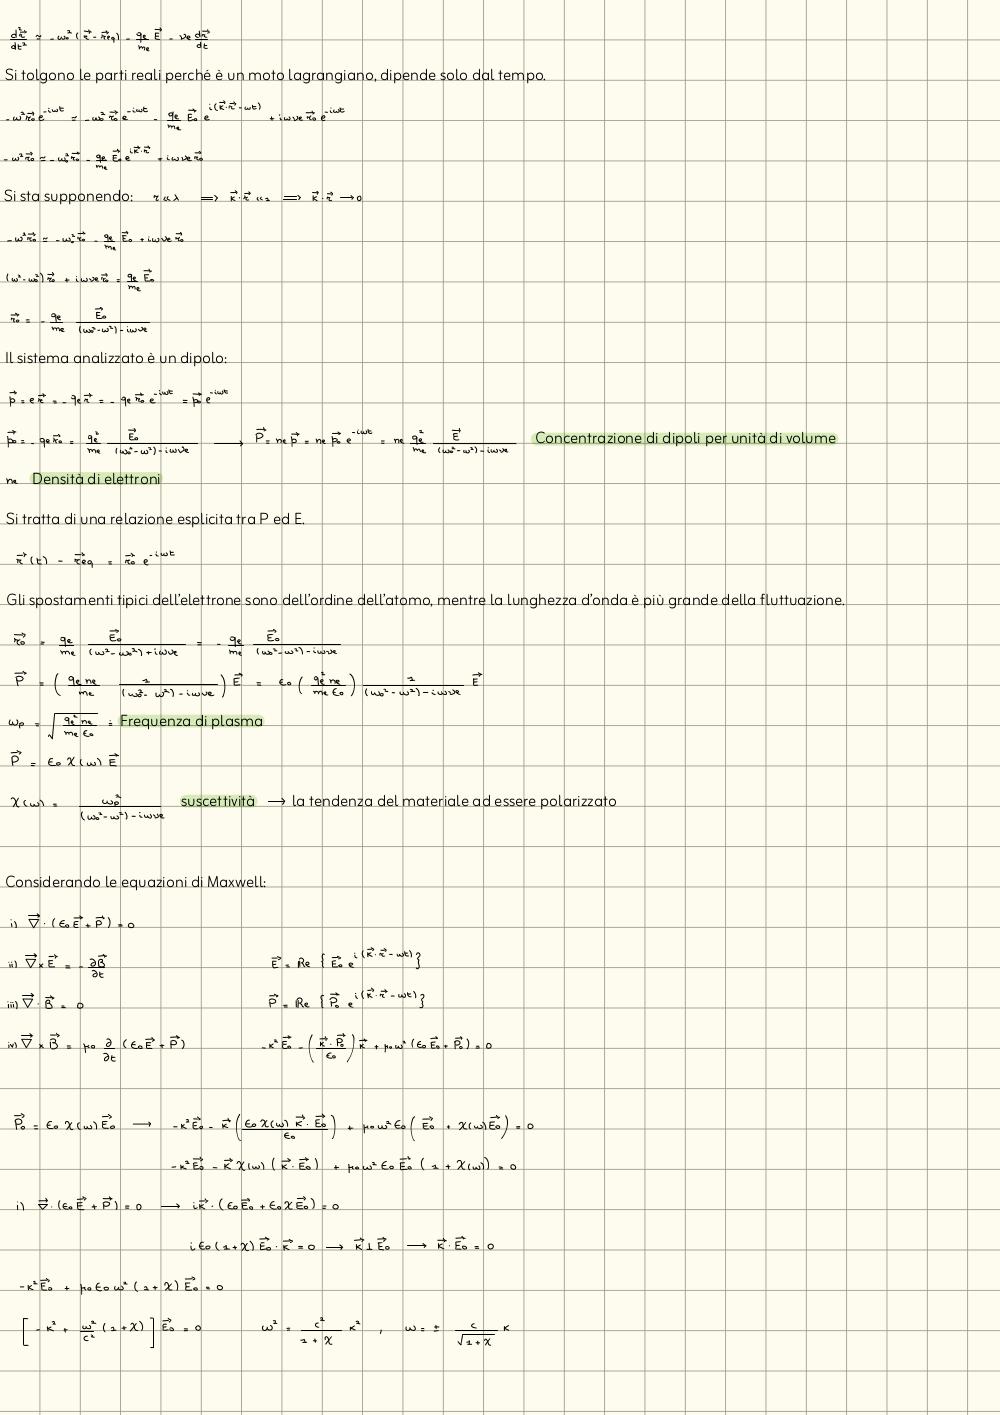 d²r⃗/dt² ≃ -ω₀²(r⃗ - r⃗eq) - qe/me E⃗ - νe dr⃗/dt
Si tolgono le parti reali perché è un moto lagrangiano, dipende solo dal tempo.
-ω²r⃗₀e^-iωt ≃ -ω₀²r⃗₀e^-iωt - qe/me E⃗₀ e^i(k⃗·r⃗-ωt) + iωνe r⃗₀ e^-iωt
-ω²r⃗₀ ≃ -ω₀²r⃗₀ - qe/me E⃗₀ e^ik⃗·r⃗ + iωνe r⃗₀
Si sta supponendo: r ≪ λ ⟹ k⃗·r⃗ ≪ 1 ⟹ k⃗·r⃗ → 0
-ω²r⃗₀ ≃ -ω₀²r⃗₀ - qe/me E⃗₀ + iωνe r⃗₀
(ω²-ω₀²)r⃗₀ + iωνe r⃗₀ = qe/me E⃗₀
r⃗₀ = - qe/me E⃗₀/((ω₀²-ω²)-iωνe)
Il sistema analizzato è un dipolo:
p⃗ = er⃗ = -qe r⃗ = -qe r⃗₀ e^-iωt = p⃗₀ e^-iωt
p⃗₀ = -qe r⃗₀ = qe²/me E⃗₀/((ω₀²-ω²)-iωνe) → P⃗ = ne p⃗ = ne p⃗₀ e^-iωt = ne qe²/me E⃗/((ω₀²-ω²)-iωνe) Concentrazione di dipoli per unità di volume
ne Densità di elettroni
Si tratta di una relazione esplicita tra P ed E.
r⃗(t) - r⃗eq = r⃗₀ e^-iωt
Gli spostamenti tipici dell'elettrone sono dell'ordine dell'atomo, mentre la lunghezza d'onda è più grande della fluttuazione.
r⃗₀ = qe/me E⃗₀/((ω²-ω₀²)+iωνe) = - qe/me E⃗₀/((ω₀²-ω²)-iωνe)
P⃗ = (qe²ne/me 1/((ω₀²-ω²)-iωνe)) E⃗ = ε₀ (qe²ne/meε₀) 1/((ω₀²-ω²)-iωνe) E⃗
ωp = √(qe²ne/meε₀) : Frequenza di plasma
P⃗ = ε₀ χ(ω) E⃗
χ(ω) = ωp²/((ω₀²-ω²)-iωνe) suscettività → la tendenza del materiale ad essere polarizzato
Considerando le equazioni di Maxwell:
i) ∇⃗·(ε₀E⃗+P⃗) = 0
ii) ∇⃗×E⃗ = -∂B⃗/∂t E⃗ = Re {E⃗₀ e^i(k⃗·r⃗-ωt)}
iii) ∇⃗·B⃗ = 0 P⃗ = Re {P⃗₀ e^i(k⃗·r⃗-ωt)}
iv) ∇⃗×B⃗ = μ₀ ∂/∂t (ε₀E⃗+P⃗) -k²E⃗₀ - (k⃗·P⃗₀/ε₀) k⃗ + μ₀ω²(ε₀E⃗₀+P⃗₀) = 0
P⃗₀ = ε₀ χ(ω) E⃗₀ → -k²E⃗₀ - k⃗ (ε₀ χ(ω) k⃗·E⃗₀/ε₀) + μ₀ω²ε₀ (E⃗₀ + χ(ω)E⃗₀) = 0
-k²E⃗₀ - k⃗ χ(ω) (k⃗·E⃗₀) + μ₀ω²ε₀ E⃗₀ (1 + χ(ω)) = 0
i) ∇⃗·(ε₀E⃗+P⃗) = 0 → ik⃗·(ε₀E⃗₀ + ε₀χE⃗₀) = 0
iε₀(1+χ) E⃗₀·k⃗ = 0 → k⃗⊥E⃗₀ → k⃗·E⃗₀ = 0
-k²E⃗₀ + μ₀ε₀ω² (1+χ) E⃗₀ = 0
[-k² + ω²/c² (1+χ)] E⃗₀ = 0 ω² = c²/(1+χ) k² , ω = ± c/√(1+χ) k